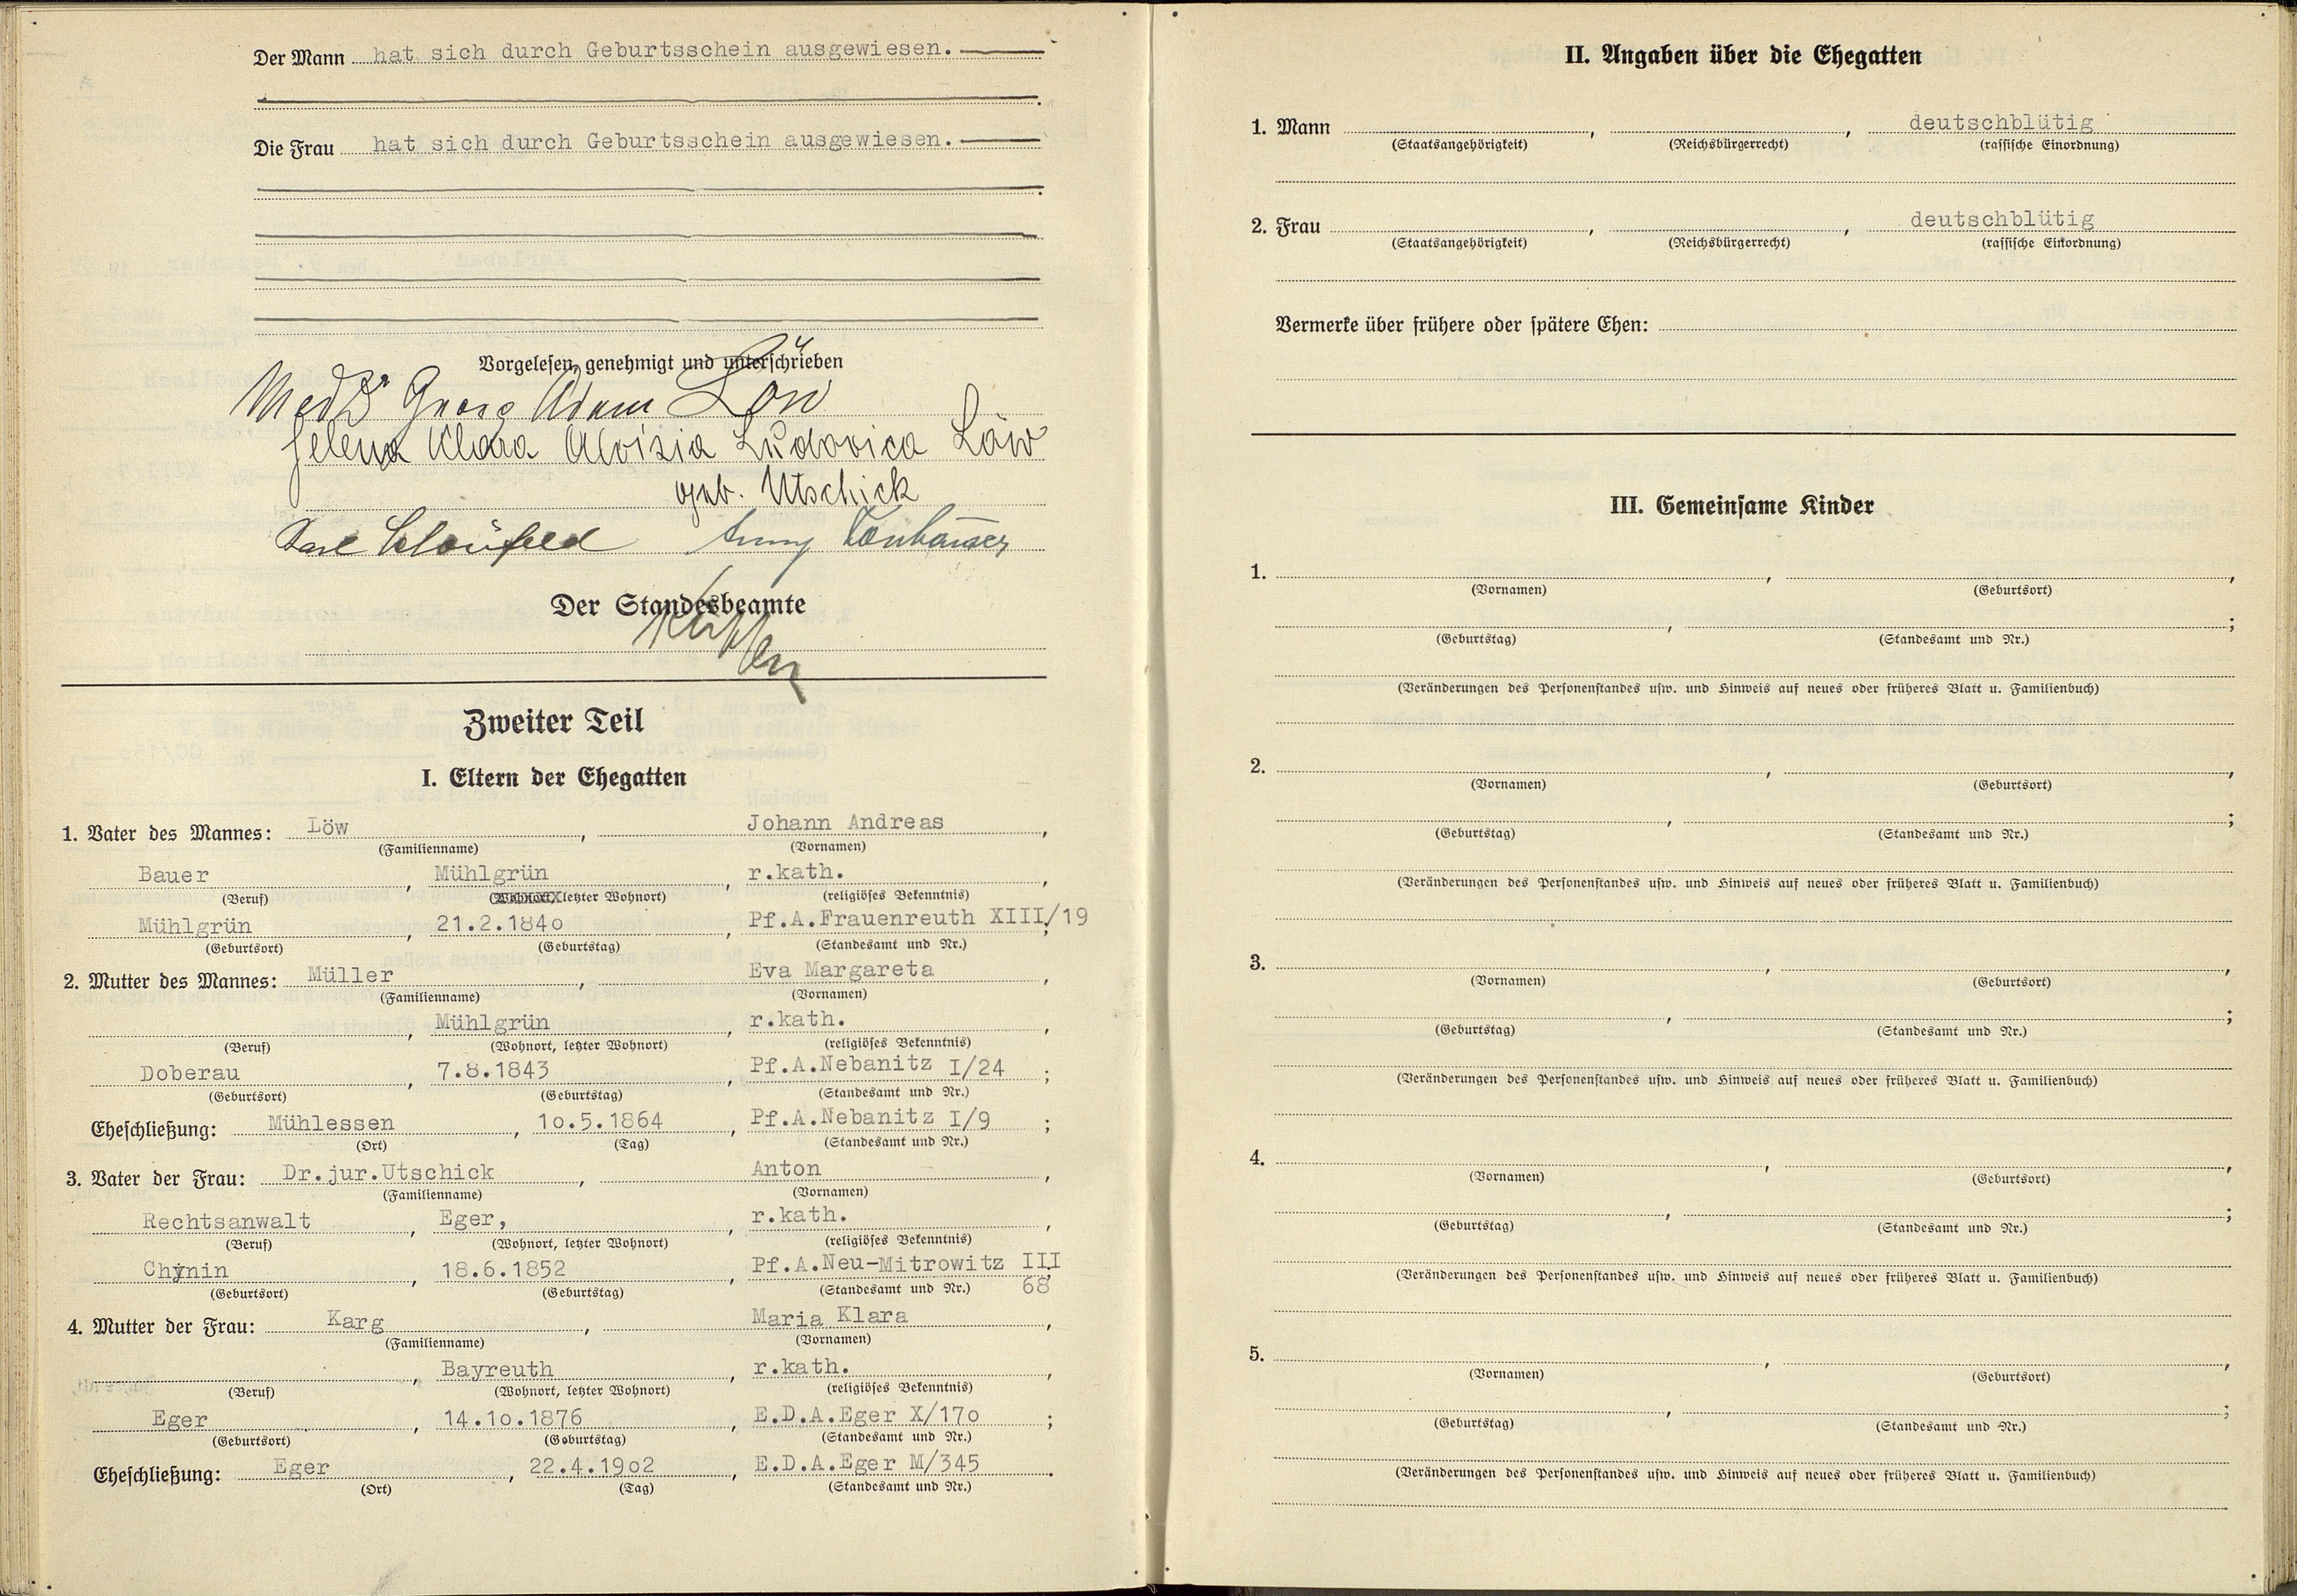 Der Mann hat sich durch Geburtsschein ausgewiesen.
Die Frau hat sich durch Geburtsschein ausgewiesen.
Vorgelesen, genehmigt und unterschrieben
Med Dr Georg Adam Löw
Helena Klara Aloisia Ludovica Löw
geb. Utschick
Karl Schönfeld Anny Lonhäuser
Der Standesbeamte
Zweiter Teil
I. Eltern der Ehegatten
1. Vater des Mannes: Löw , Johann Andreas ,
(Familienname) (Vornamen)
Bauer , Mühlgrün , r.kath. ,
(Beruf) (Wohnort, letzter Wohnort) (religiöses Bekenntnis)
Mühlgrün , 21.2.1840 , Pf.A.Frauenreuth XIII/19 ;
(Geburtsort) (Geburtstag) (Standesamt und Nr.)
2. Mutter des Mannes: Müller , Eva Margareta ,
(Familienname) (Vornamen)
, Mühlgrün , r.kath. ,
(Beruf) (Wohnort, letzter Wohnort) (religiöses Bekenntnis)
Doberau , 7.8.1843 , Pf.A.Nebanitz I/24 ;
(Geburtsort) (Geburtstag) (Standesamt und Nr.)
Eheschließung: Mühlessen , 10.5.1864 , Pf.A.Nebanitz I/9 ;
(Ort) (Tag) (Standesamt und Nr.)
3. Vater der Frau: Dr.jur.Utschick , Anton ,
(Familienname) (Vornamen)
Rechtsanwalt , Eger, , r.kath. ,
(Beruf) (Wohnort, letzter Wohnort) (religiöses Bekenntnis)
Chynin , 18.6.1852 , Pf.A.Neu-Mitrowitz III ;
(Geburtsort) (Geburtstag) (Standesamt und Nr.) 68
4. Mutter der Frau: Karg , Maria Klara ,
(Familienname) (Vornamen)
, Bayreuth , r.kath. ,
(Beruf) (Wohnort, letzter Wohnort) (religiöses Bekenntnis)
Eger , 14.10.1876 , E.D.A.Eger X/170 ;
(Geburtsort) (Geburtstag) (Standesamt und Nr.)
Eheschließung: Eger , 22.4.1902 , E.D.A.Eger M/345 .
(Ort) (Tag) (Standesamt und Nr.)
II. Angaben über die Ehegatten
1. Mann , , deutschblütig
(Staatsangehörigkeit) (Reichsbürgerrecht) (rassische Einordnung)
2. Frau , , deutschblütig
(Staatsangehörigkeit) (Reichsbürgerrecht) (rassische Einordnung)
Vermerke über frühere oder spätere Ehen:
III. Gemeinsame Kinder
1. , ,
(Vornamen) (Geburtsort)
, ;
(Geburtstag) (Standesamt und Nr.)
(Veränderungen des Personenstandes usw. und Hinweis auf neues oder früheres Blatt u. Familienbuch)
2. , ,
(Vornamen) (Geburtsort)
, ;
(Geburtstag) (Standesamt und Nr.)
(Veränderungen des Personenstandes usw. und Hinweis auf neues oder früheres Blatt u. Familienbuch)
3. , ,
(Vornamen) (Geburtsort)
, ;
(Geburtstag) (Standesamt und Nr.)
(Veränderungen des Personenstandes usw. und Hinweis auf neues oder früheres Blatt u. Familienbuch)
4. , ,
(Vornamen) (Geburtsort)
, ;
(Geburtstag) (Standesamt und Nr.)
(Veränderungen des Personenstandes usw. und Hinweis auf neues oder früheres Blatt u. Familienbuch)
5. , ,
(Vornamen) (Geburtsort)
, ;
(Geburtstag) (Standesamt und Nr.)
(Veränderungen des Personenstandes usw. und Hinweis auf neues oder früheres Blatt u. Familienbuch)